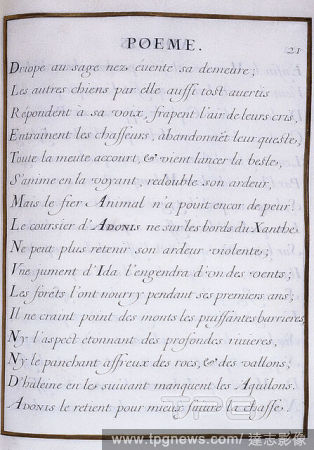 POEME.
21
Driope au sage nez, euente sa demeure;
Les autres chiens par elle aussi tost auertis
Répondent à sa voix, frapent l'air de leurs cris,
Entraînent les chasseurs, abandonnẽt leur queste,
Toute la meute accourt, & vient lancer la beste,
S'anime en la voyant, redouble son ardeur,
Mais le fier Animal n'a point encor de peur.
Le coursier d'ADONIS né sur les bords du Xanthe
Ne peut plus retenir son ardeur violente;
Vne jument d'Ida l'engendra d'vn des vents;
Les forêts l'ont nourry pendant ses premiers ans;
Il ne craint point des monts les puissantes barrieres,
Ny l'aspect etonnant des profondes riuieres,
Ny le panchant affreux des rocs, & des vallons;
D'haleine en le suiuant manquent les Aquilons.
ADONIS le retient pour mieux suiure la chasse.
TPG
www.tpgnews.com / 達志影像